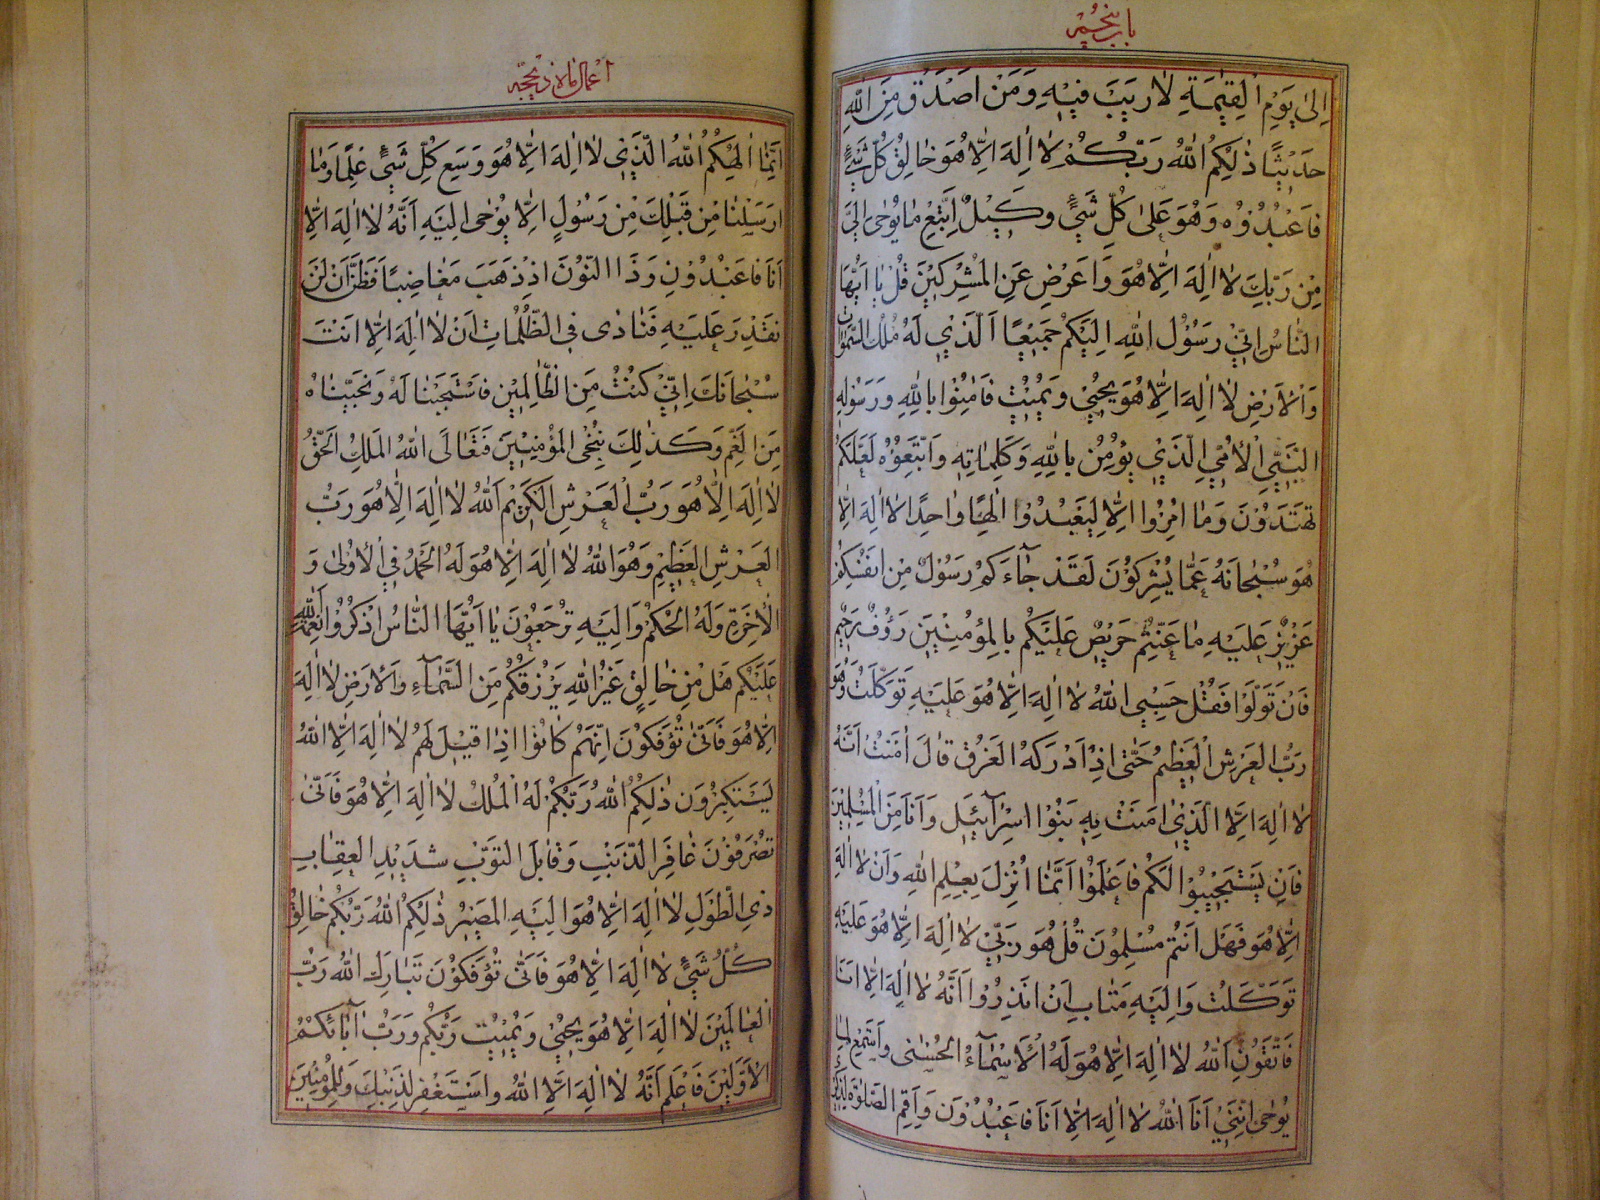 باب پنجم
اِلىٰ يَوْمِ الْقِيٰمَةِ لاٰ رَيْبَ فيٖهِ وَمَنْ اَصْدَقُ مِنَ اللهِ
حَديٖثًا ذٰلِكُمُ اللهُ رَبُّكُمْ لاٰ اِلٰهَ اِلاّٰ هُوَ خٰالِقُ كُلِّ شَيْءٍ
فَاعْبُدُوُه وَهُوَ عَلىٰ كُلِّ شَيْءٍ وَكيٖلٌ اِتَّبِعْ مٰا يُوُحىٰ اِلَيْ
مِنْ رَبِّكَ لاٰ اِلٰهَ اِلاّٰ هُوَ وَاَعْرِضْ عَنِ الْمُشْرِكيٖنَ قُلْ يٰا اَيُّهَا
النّٰاسُ اِنّيٖ رَسُوُلُ اللهِ اِلَيْكُمْ جَميٖعًا اَلَّذيٖ لَهُ مُلْكُ السَّمٰوٰاتِ
وَالْاَرْضِ لاٰ اِلٰهَ اِلاّٰ هُوَ يُحْييٖ وَيُميٖتُ فَاٰمِنُوا بِاللهِ وَرَسُولِهِ
النَّبِيِّ الْاُمِّيِّ الَّذيٖ يُؤْمِنُ بِاللهِ وَكَلِمٰاتِهٖ وَاتَّبِعُوُهُ لَعَلَّكُمْ
تَهْتَدُوُنَ وَمٰا اُمِرُوا اِلاّٰ لِيَعْبُدُوا اِلٰهًا وٰاحِدًا لاٰ اِلٰهَ اِلاّٰ
هُوَ سُبْحٰانَهُ عَمّٰا يُشْرِكُوُنَ لَقَدْ جٰاءَكُمْ رَسُوُلٌ مِنْ اَنْفُسِكُمْ
عَزيٖزٌ عَلَيْهِ مٰا عَنِتُّمْ حَريٖصٌ عَلَيْكُم بِالْمُؤْمِنيٖنَ رَؤُفٌ رَحيٖمٌ
فَاِنْ تَوَلَّوْا فَقُلْ حَسْبِيَ اللهُ لاٰ اِلٰهَ اِلاّٰ هُوَ عَلَيْهِ تَوَكَّلْتُ وَهُوَ
رَبُّ الْعَرْشِ الْعَظيٖمِ حَتّىٰ اِذٰا اَدْرَكَهُ الْغَرَقُ قٰالَ اٰمَنْتُ اَنَّهُ
لاٰ اِلٰهَ اِلاَّ الَّذيٖ اٰمَنَتْ بِهٖ بَنُوا اِسْرٰآئيٖلَ وَاَنَا مِنَ الْمُسْلِميٖنَ
فَاِنْ يَسْتَجيٖبُوا لَكُمْ فَاعْلَمُوا اَنَّمٰا اُنْزِلَ بِعِلْمِ اللهِ وَاَنْ لاٰ اِلٰهَ
اِلاّٰ هُوَ فَهَلْ اَنْتُمْ مُسْلِمُونَ قُلْ هُوَ رَبّيٖ لاٰ اِلٰهَ اِلاّٰ هُوَ عَلَيْهِ
تَوَكَّلْتُ وَاِلَيْهِ مَتٰابِ اَنْ اَنْذِرُوا اَنَّهُ لاٰ اِلٰهَ اِلاّٰ اَنَا
فَاتَّقُوُنِ اَللهُ لاٰ اِلٰهَ اِلاّٰ هُوَ لَهُ الْاَسْمٰآءُ الْحُسْنىٰ وَاسْتَمِعْ لِمٰا
يُوُحىٰ اِنَّنيٖ اَنَا اللهُ لاٰ اِلٰهَ اِلاّٰ اَنَا فَاعْبُدُوُنِ وَاَقِمِ الصَّلٰوةَ لِذِكْريٖ
اعمال ماه ذيحجّه
اِنَّمٰا اِلٰهُكُمُ اللهُ الَّذيٖ لاٰ اِلٰهَ اِلاّٰ هُوَ وَسِعَ كُلَّ شَيْءٍ عِلْمًا وَمٰا
اَرْسَلْنٰا مِنْ قَبْلِكَ مِنْ رَسُوُلٍ اِلاّٰ يوُحىٰ اِلَيْهِ اَنَّهُ لاٰ اِلٰهَ اِلاّٰ
اَنَا فَاعْبُدُوُنِ وَذَا النُّوُنِ اِذْ ذَهَبَ مُغٰاضِبًا فَظَنَّ اَنْ لَنْ
نَقْدِرَ عَلَيْهِ فَنٰادىٰ فِي الظُّلُمٰاتِ اَنْ لاٰ اِلٰهَ اِلاّٰ اَنْتَ
سُبْحٰانَكَ اِنّيٖ كُنْتُ مِنَ الظّٰالِميٖنَ فَاسْتَجَبْنٰا لَهُ وَنَجَّيْنٰاهُ
مِنَ الْغَمِّ وَكَذٰلِكَ نُنْجِي الْمُؤْمِنيٖنَ فَتَعٰالَى اللهُ الْمَلِكُ الْحَقُّ
لاٰ اِلٰهَ اِلاّٰ هُوَ رَبُّ الْعَرْشِ الْكَريٖمِ اَللهُ لاٰ اِلٰهَ اِلاّٰ هُوَ رَبُّ
الْعَرْشِ الْعَظيٖمِ وَهُوَ اللهُ لاٰ اِلٰهَ اِلاّٰ هُوَ لَهُ الْحَمْدُ فِي الْاُولىٰ وَ
الْاٰخِرَةِ وَلَهُ الْحُكْمُ وَاِلَيْهِ تُرْجَعُوُنَ يٰا اَيُّهَا النّٰاسُ اذْكُرُوا نِعْمَةَ اللهِ
عَلَيْكُم هَلْ مِنْ خٰالِقٍ غَيْرُ اللهِ يَرْزُقُكُمْ مِنَ السَّمٰآءِ وَالْاَرْضِ لاٰ اِلٰهَ
اِلاّٰ هُوَ فَاَنّىٰ تُؤْفَكُوُنَ اِنَّهُمْ كٰانُوا اِذٰا قيٖلَ لَهُمْ لاٰ اِلٰهَ اِلاَّ اللهُ
يَسْتَكْبِرُونَ ذٰلِكُمُ اللهُ رَبُّكُمْ لَهُ الْمُلْكُ لاٰ اِلٰهَ اِلاّٰ هُوَ فَاَنّىٰ
تُصْرَفُوُنَ غٰافِرِ الذَّنْبِ وَقٰابِلِ التَّوْبِ شَديٖدِ الْعِقٰابِ
ذِي الطَّوْلِ لاٰ اِلٰهَ اِلاّٰ هُوَ اِلَيْهِ الْمَصيٖرُ ذٰلِكُمُ اللهُ رَبُّكُمْ خٰالِقُ
كُلِّ شَيْءٍ لاٰ اِلٰهَ اِلاّٰ هُوَ فَاَنّىٰ تُؤْفَكُوُنَ تَبٰارَكَ اللهُ رَبُّ
الْعٰالَميٖنَ لاٰ اِلٰهَ اِلاّٰ هُوَ يُحْييٖ وَيُميٖتُ رَبُّكُمْ وَرَبُّ اٰبٰآئِكُمُ
الْاَوَّليٖنَ فَاعْلَمْ اَنَّهُ لاٰ اِلٰهَ اِلاَّ اللهُ وَاسْتَغْفِرْ لِذَنْبِكَ وَلِلْمُؤْمِنيٖنَ